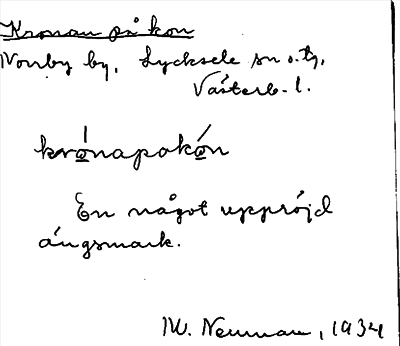 Kronan på kon
Norrby by, Lycksele sn o. tg,
Västerb. l.
krónapokón
En något uppröjd
ängsmark.
M. Neuman, 1934